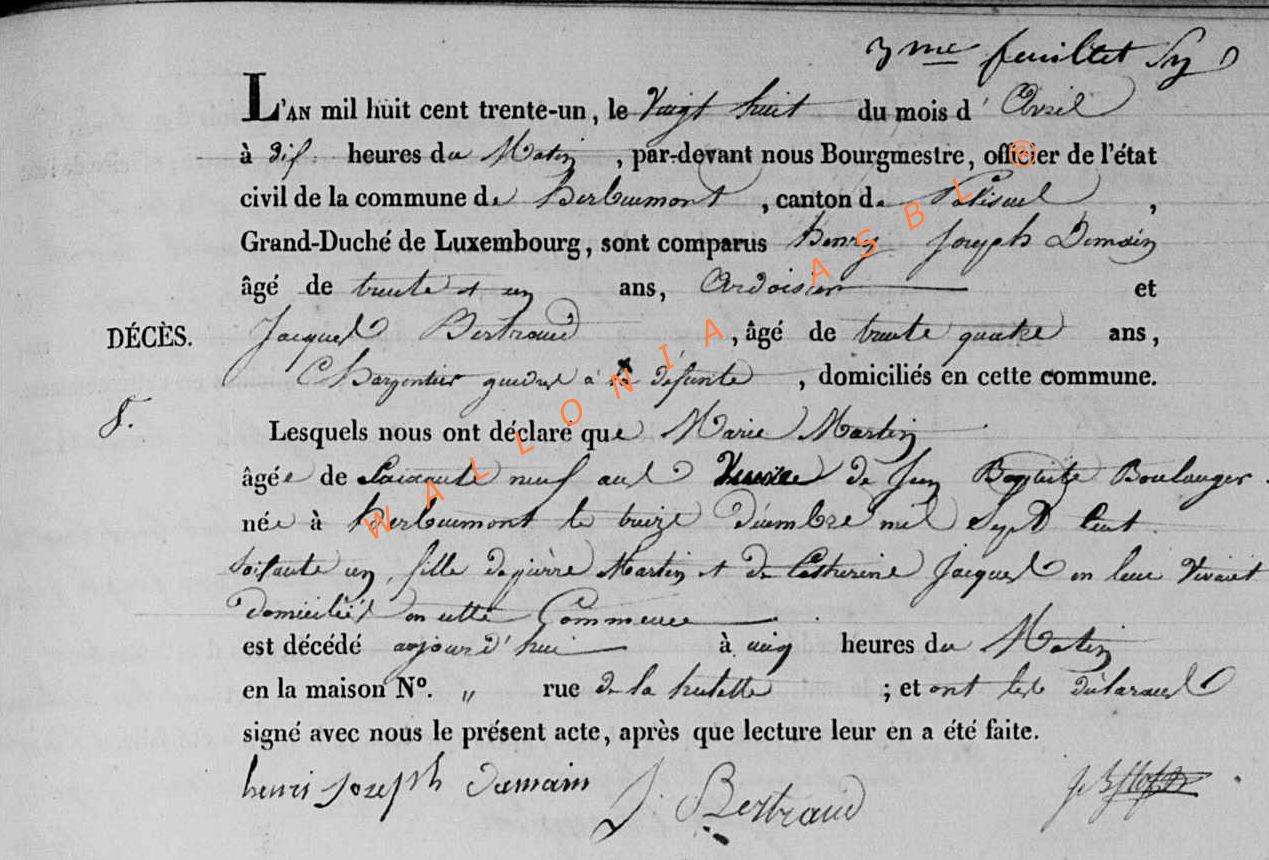 3me feuillet
L'AN mil huit cent trente-un, le Vingt huit du mois d'Avril
à dix heures du Matin, par-devant nous Bourgmestre, officier de l'état
civil de la commune de herbeumont, canton de Paliseul,
Grand-Duché de Luxembourg, sont comparus henry Joseph Demain
âgé de trente et un ans, Ardoisier et
Jacques Bertrand, âgé de trente quatre ans,
DÉCÈS.
Charpentier gendre à la défunte, domiciliés en cette commune.
8.
Lesquels nous ont déclaré que Marie Martin
âgée de Soixante neuf ans Veuve de Jean Baptiste Boulanger
née à herbeumont le treize décembre mil Sept Cent
Soixante un, fille de pierre Martin et de Catherine Jacques en leur Vivant
domiciliés en cette Commune
est décédé aujourd'hui à cinq heures du Matin
en la maison No. " rue de la hulette ; et ont les déclarants
signé avec nous le présent acte, après que lecture leur en a été faite.
henri Joseph damain J. Bertrand
WALLONIA ASBL ®